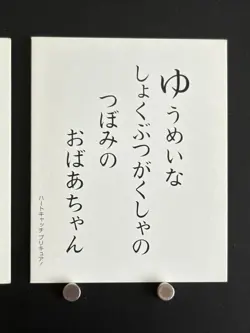 ゆうめいな
しょくぶつがくしゃの
つぼみの
おばあちゃん
ハートキャッチプリキュア！